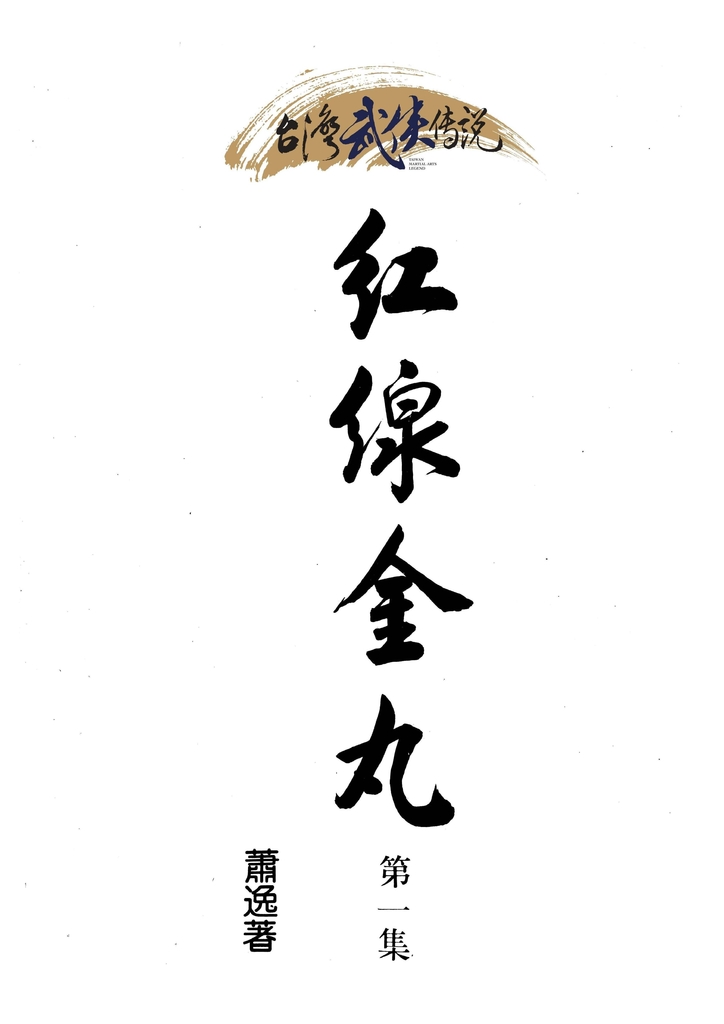 台湾武侠传说
TAIWAN
MARTIAL ARTS
LEGEND
红線金丸
第一集
蕭逸著